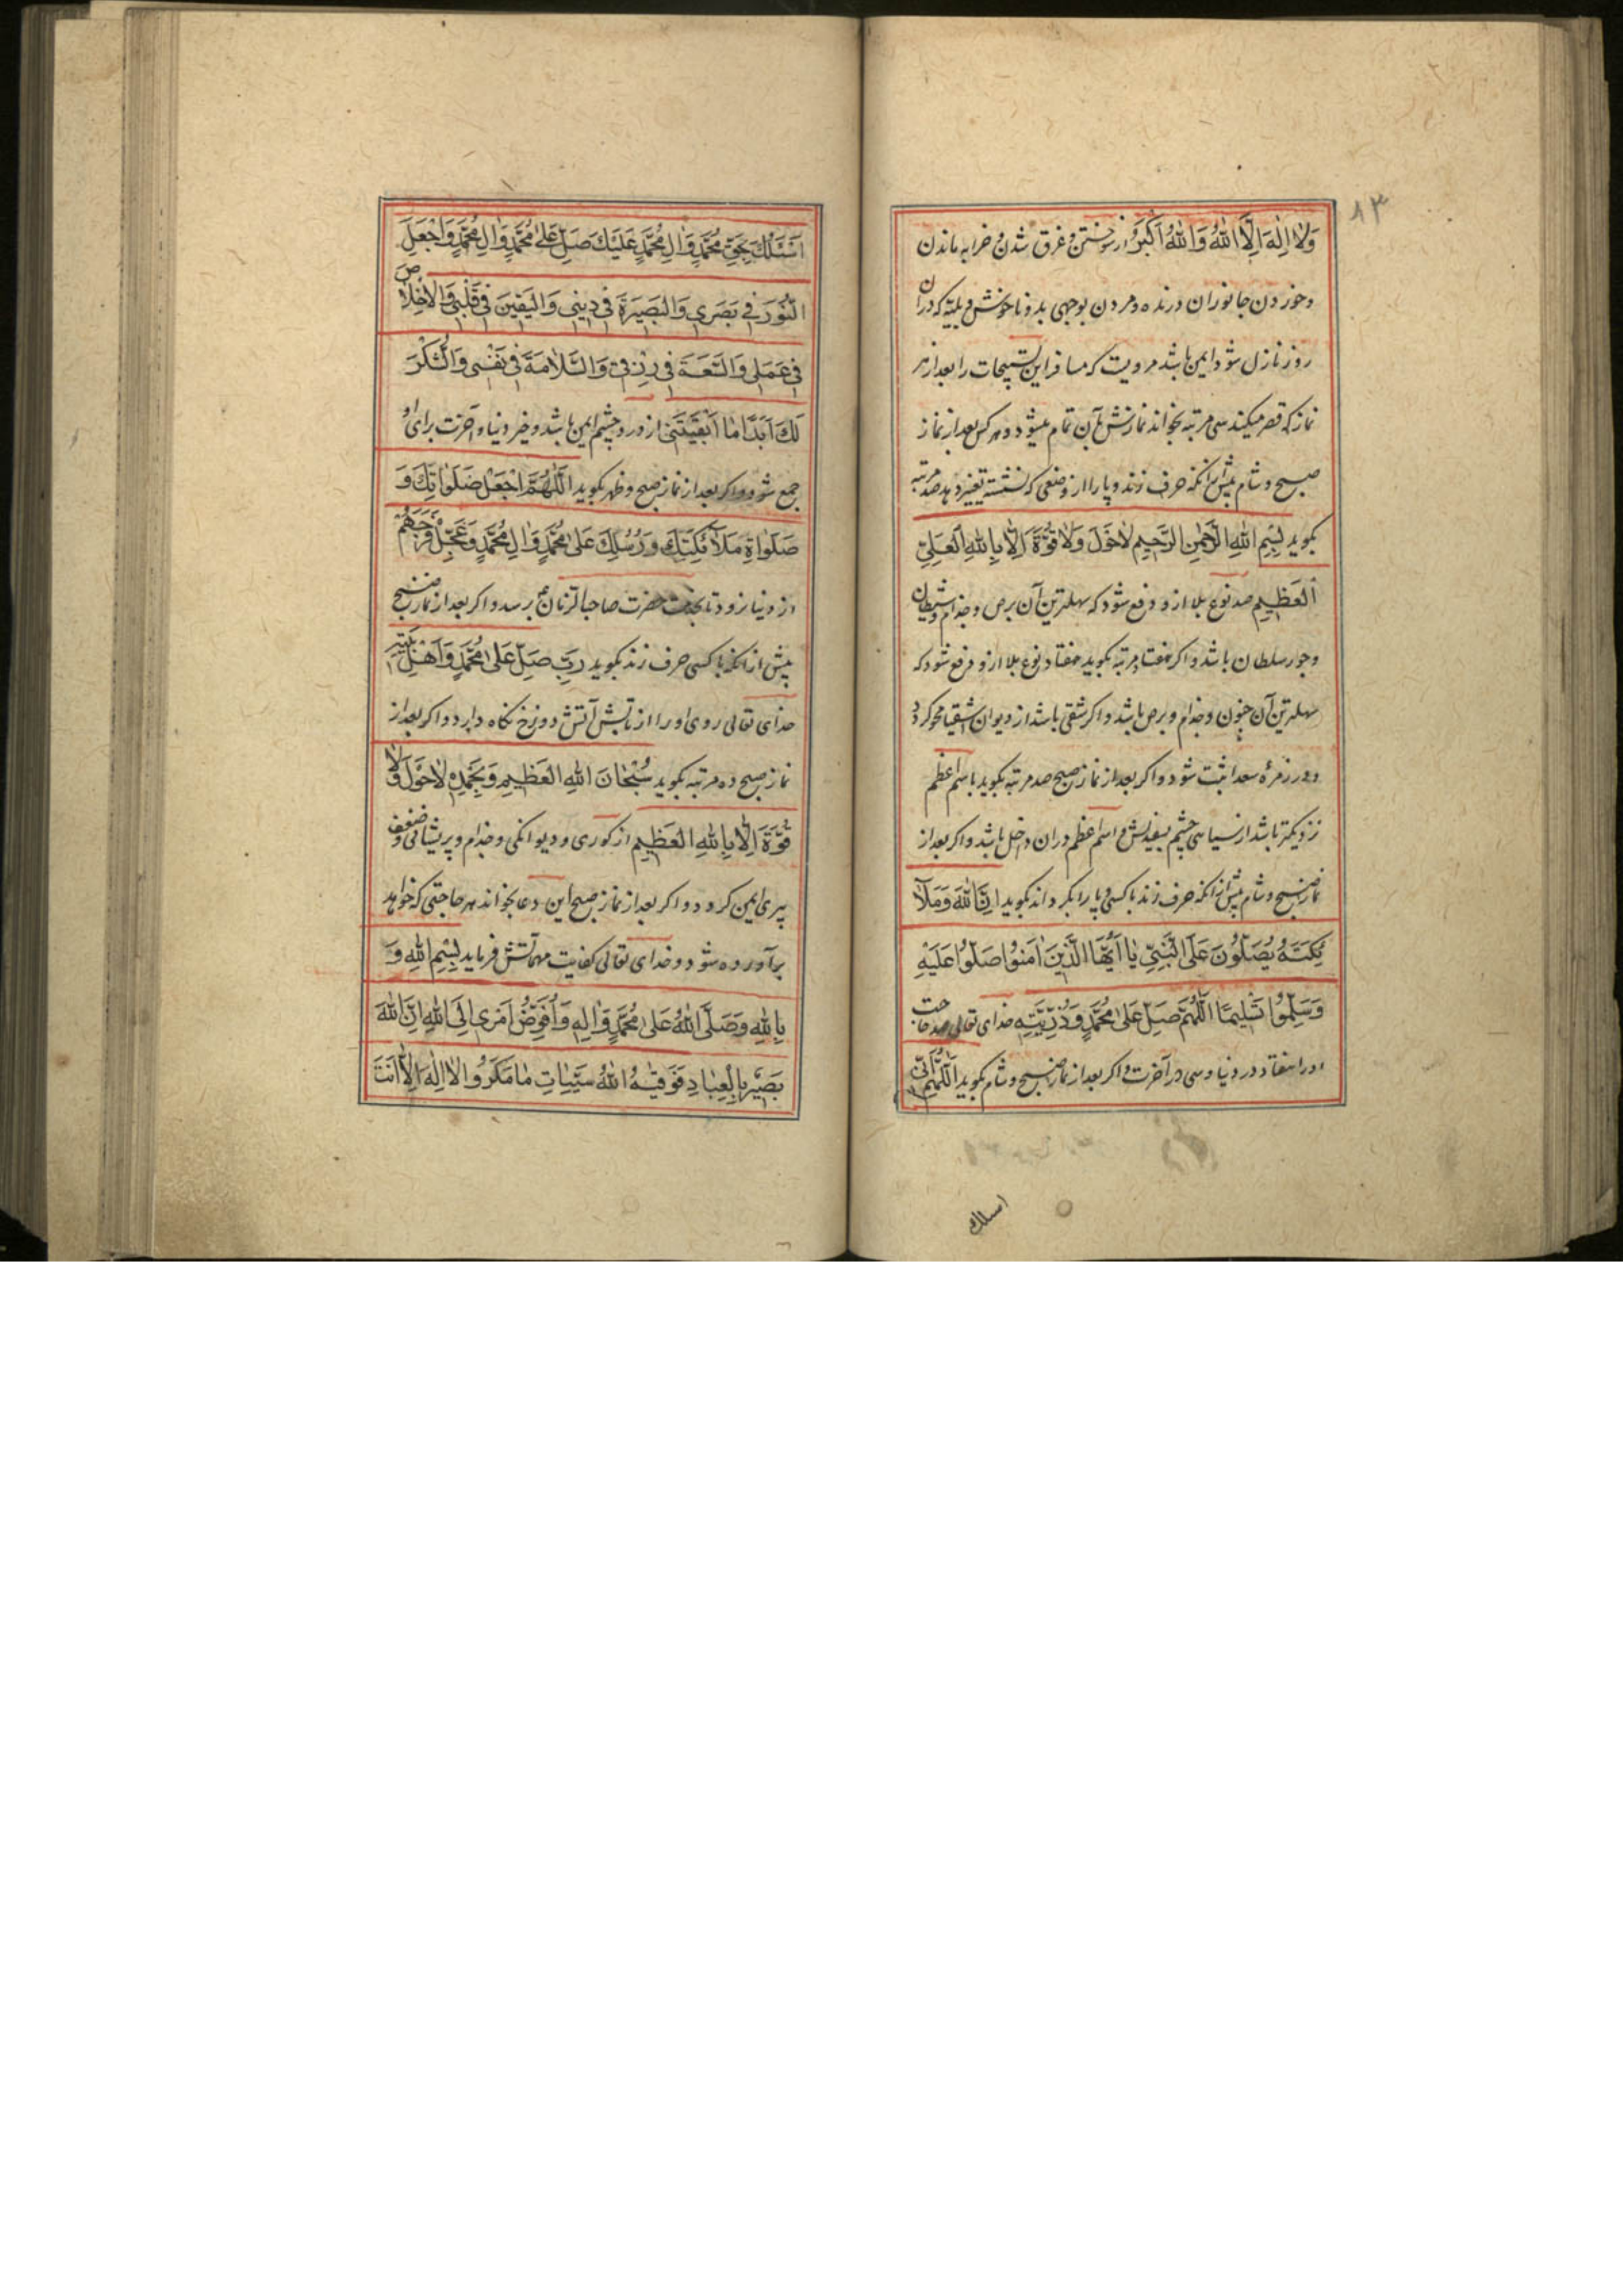 ۸۳
وَلا اِلٰهَ اِلَّا اللهُ وَاللهُ اَکبَرُ از سوختن و غرق شدن و خرابه ماندن
و خوردن جانوران درنده و مردن بوجهی بد و ناخوش و بلیّه که دران
روز نازل شود ایمن باشد مرویست که مسافر این تسبیحات را بعد از هر
نماز که قصر میکند سی مرتبه بخواند نمازش بآن تمام میشود و هرکس بعد از نماز
صبح و شام پیش از آنکه حرف زند و پا را از وضعی که نشسته تغییر دهد صد مرتبه
بکوید بِسْمِ اللهِ الرَّحْمٰنِ الرَّحیمِ لاحَوْلَ وَلا قُوَّةَ اِلّا بِاللهِ الْعَلِیِّ
الْعَظیمِ صد نوع بلا از و دفع شود که سهلترین آن برص و جذام و شیطان
و جور سلطان باشد و اکر هفتاد مرتبه بکوید هفتاد نوع بلا از و دفع شود که
سهلترین آن جنون و جذام و برص باشد و اکر شقی باشد از دیوان اشقیا محو کردد
و در زمرهٔ سعدا ثبت شود و اکر بعد از نماز صبح صد مرتبه بکوید باسم اعظم
نزدیکتر باشد از سیاهی چشم بسفیدیش و اسم اعظم دران داخل باشد و اکر بعد از
نماز صبح و شام پیش از آنکه حرف زند با کسی و پا را بکرداند بکوید اِنَّ اللهَ وَمَلآ
ئِکَتَهُ یُصَلّونَ عَلَی النَّبِیِّ یا اَیُّهَا الَّذینَ اٰمَنوُا صَلّوُا عَلَیْهِ
وَسَلِّموُا تَسْلیمًا اَللّهُمَّ صَلِّ عَلی مُحَمَّدٍ وَذُرِّیَّتِهِ خدای تعالی صد حاجت
اورا هفتاد در دنیا و سی در آخرت و اکر بعد از نماز صبح و شام بکوید اَللّهُمَّ اِنّی
اسلك
اَسْئَلُكَ بِحَقِّ مُحَمَّدٍ وَاٰلِ مُحَمَّدٍ عَلَیْكَ صَلِّ عَلی مُحَمَّدٍ وَاٰلِ مُحَمَّدٍ وَاجْعَلِ
النُّورَ فی بَصَری وَالْبَصیرَةَ فی دینی وَالْیَقینَ فی قَلْبی وَالْاِخْلاصَ
فی عَمَلی وَالسَّعَةَ فی رِزْقی وَالسَّلامَةَ فی نَفْسی وَالشُّکْرَ
لَكَ اَبَدًا ما اَبْقَیْتَنی از درد چشم ایمن باشد و خیر دنیا و آخرت برای او
جمع شود و اکر بعد از نماز صبح و ظهر بکوید اَللّهُمَّ اجْعَلْ صَلَواتِكَ وَ
صَلَواةِ مَلآئِکَتِكَ وَرُسُلِكَ عَلی مُحَمَّدٍ وَاٰلِ مُحَمَّدٍ وَعَجِّلْ فَرَجَهُمْ
از دنیا نرود تا بخدمت حضرت صاحب الزمان برسد و اکر بعد از نماز صبح
پیش از آنکه با کسی حرف زند بکوید رَبِّ صَلِّ عَلی مُحَمَّدٍ وَاَهْلِ بَیْتِهِ
خدای تعالی روی او را از تابش آتش دوزخ نکاه دارد و اکر بعد از
نماز صبح ده مرتبه بکوید سُبْحانَ اللهِ الْعَظیمِ وَبِحَمْدِهِ لاحَوْلَ وَلا
قُوَّةَ اِلّا بِاللهِ الْعَظیمِ از کوری و دیوانکی و جذام و پریشانی و ضعف
پیری ایمن کردد و اکر بعد از نماز صبح این دعا بخواند هر حاجتی که خواهد
برآورده شود و خدای تعالی کفایت مهمّاتش فرماید بِسْمِ اللهِ وَ
بِاللهِ وَصَلَّی اللهُ عَلی مُحَمَّدٍ وَاٰلِهِ وَاُفَوِّضُ اَمْری اِلَی اللهِ اِنَّ اللهَ
بَصیرٌ بِالْعِبادِ فَوَقیٰهُ اللهُ سَیِّئاتِ ما مَکَرُوا لا اِلٰهَ اِلّا اَنْتَ